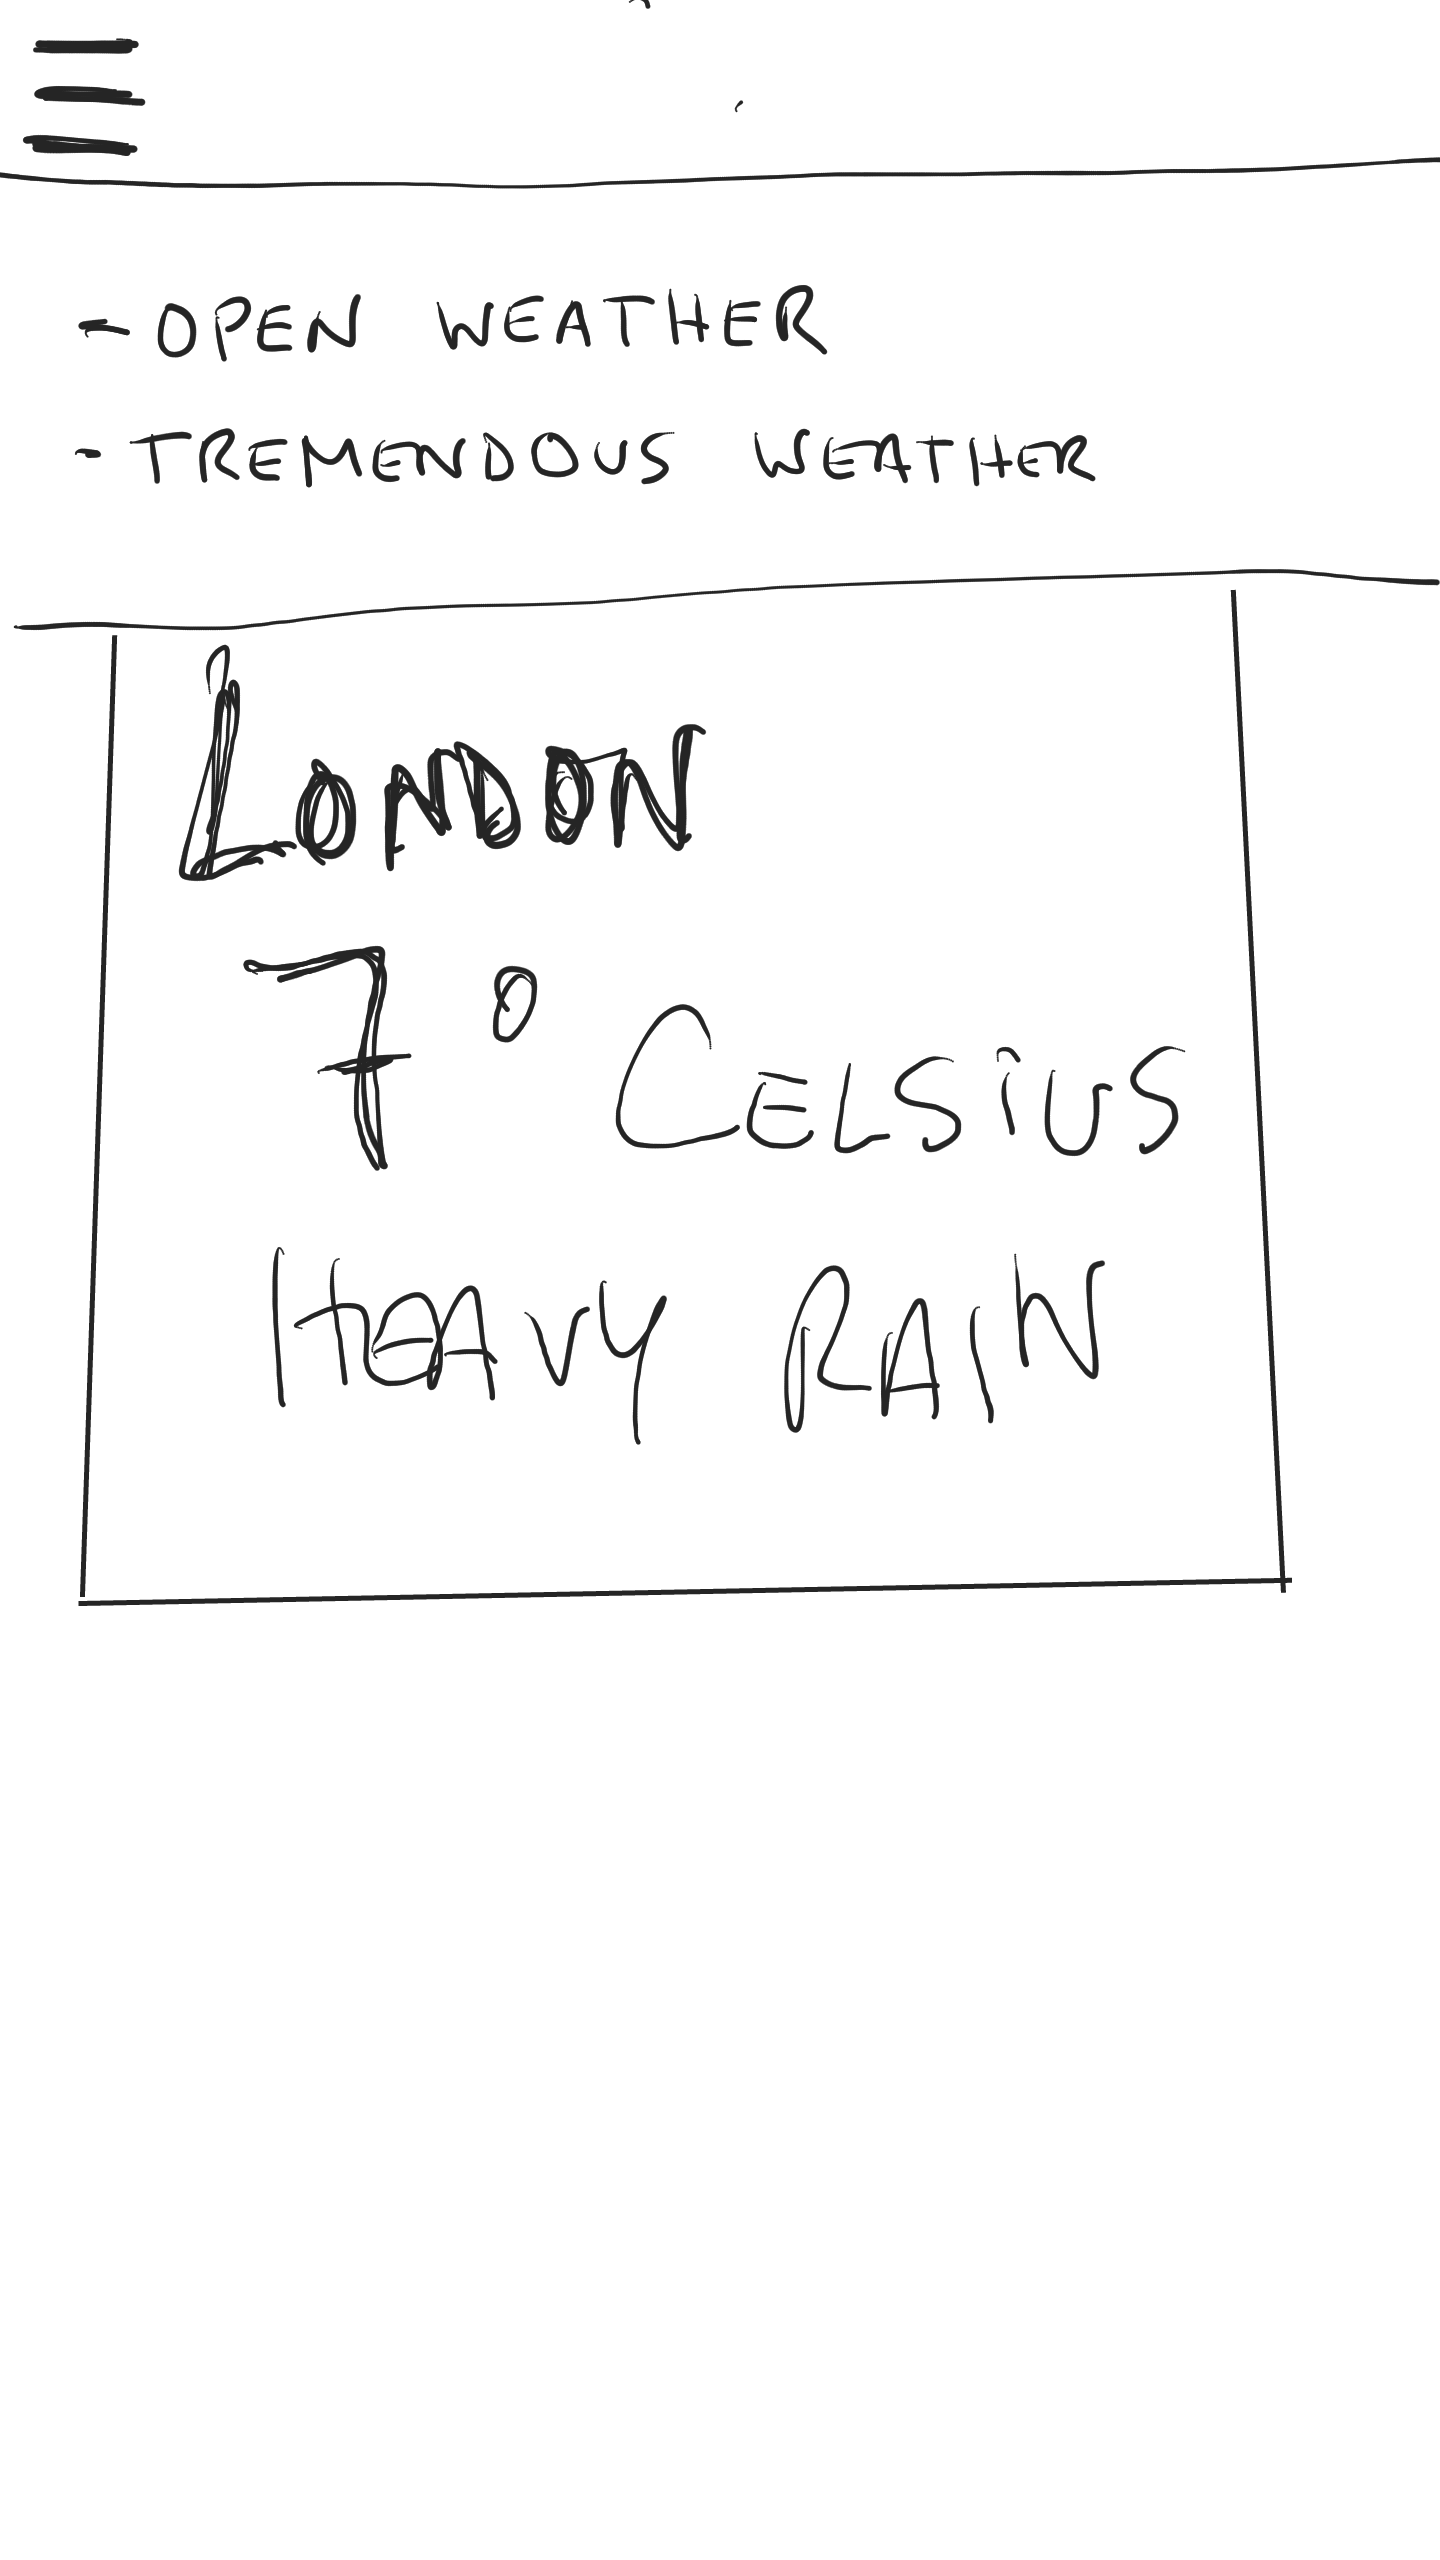 - OPEN WEATHER
- TREMENDOUS WEATHER
LONDON
7° CELSIUS
HEAVY RAIN